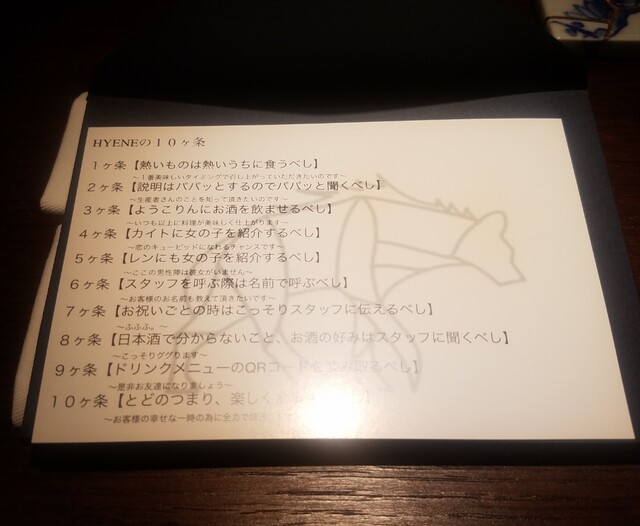 HYENEの１０ヶ条
１ヶ条【熱いものは熱いうちに食うべし】
～１番美味しいタイミングで召し上がっていただきたいのです～
２ヶ条【説明はパパッとするのでパパッと聞くべし】
～生産者さんのことを知って頂きたいのです～
３ヶ条【ようこりんにお酒を飲ませるべし】
～いつも以上に料理が美味しく仕上がります～
４ヶ条【カイトに女の子を紹介するべし】
～恋のキューピッドになれるチャンスです～
５ヶ条【レンにも女の子を紹介するべし】
～ここの男性陣は彼女がいません～
６ヶ条【スタッフを呼ぶ際は名前で呼ぶべし】
～お客様のお名前も教えて頂きたいです～
７ヶ条【お祝いごとの時はこっそりスタッフに伝えるべし】
～ふふふ。～
８ヶ条【日本酒で分からないこと、お酒の好みはスタッフに聞くべし】
～こっそりググります～
９ヶ条【ドリンクメニューのQRコードを読み取るべし】
～是非お友達になりましょう～
１０ヶ条【とどのつまり、楽しく
～お客様の幸せな一時の為に全力で